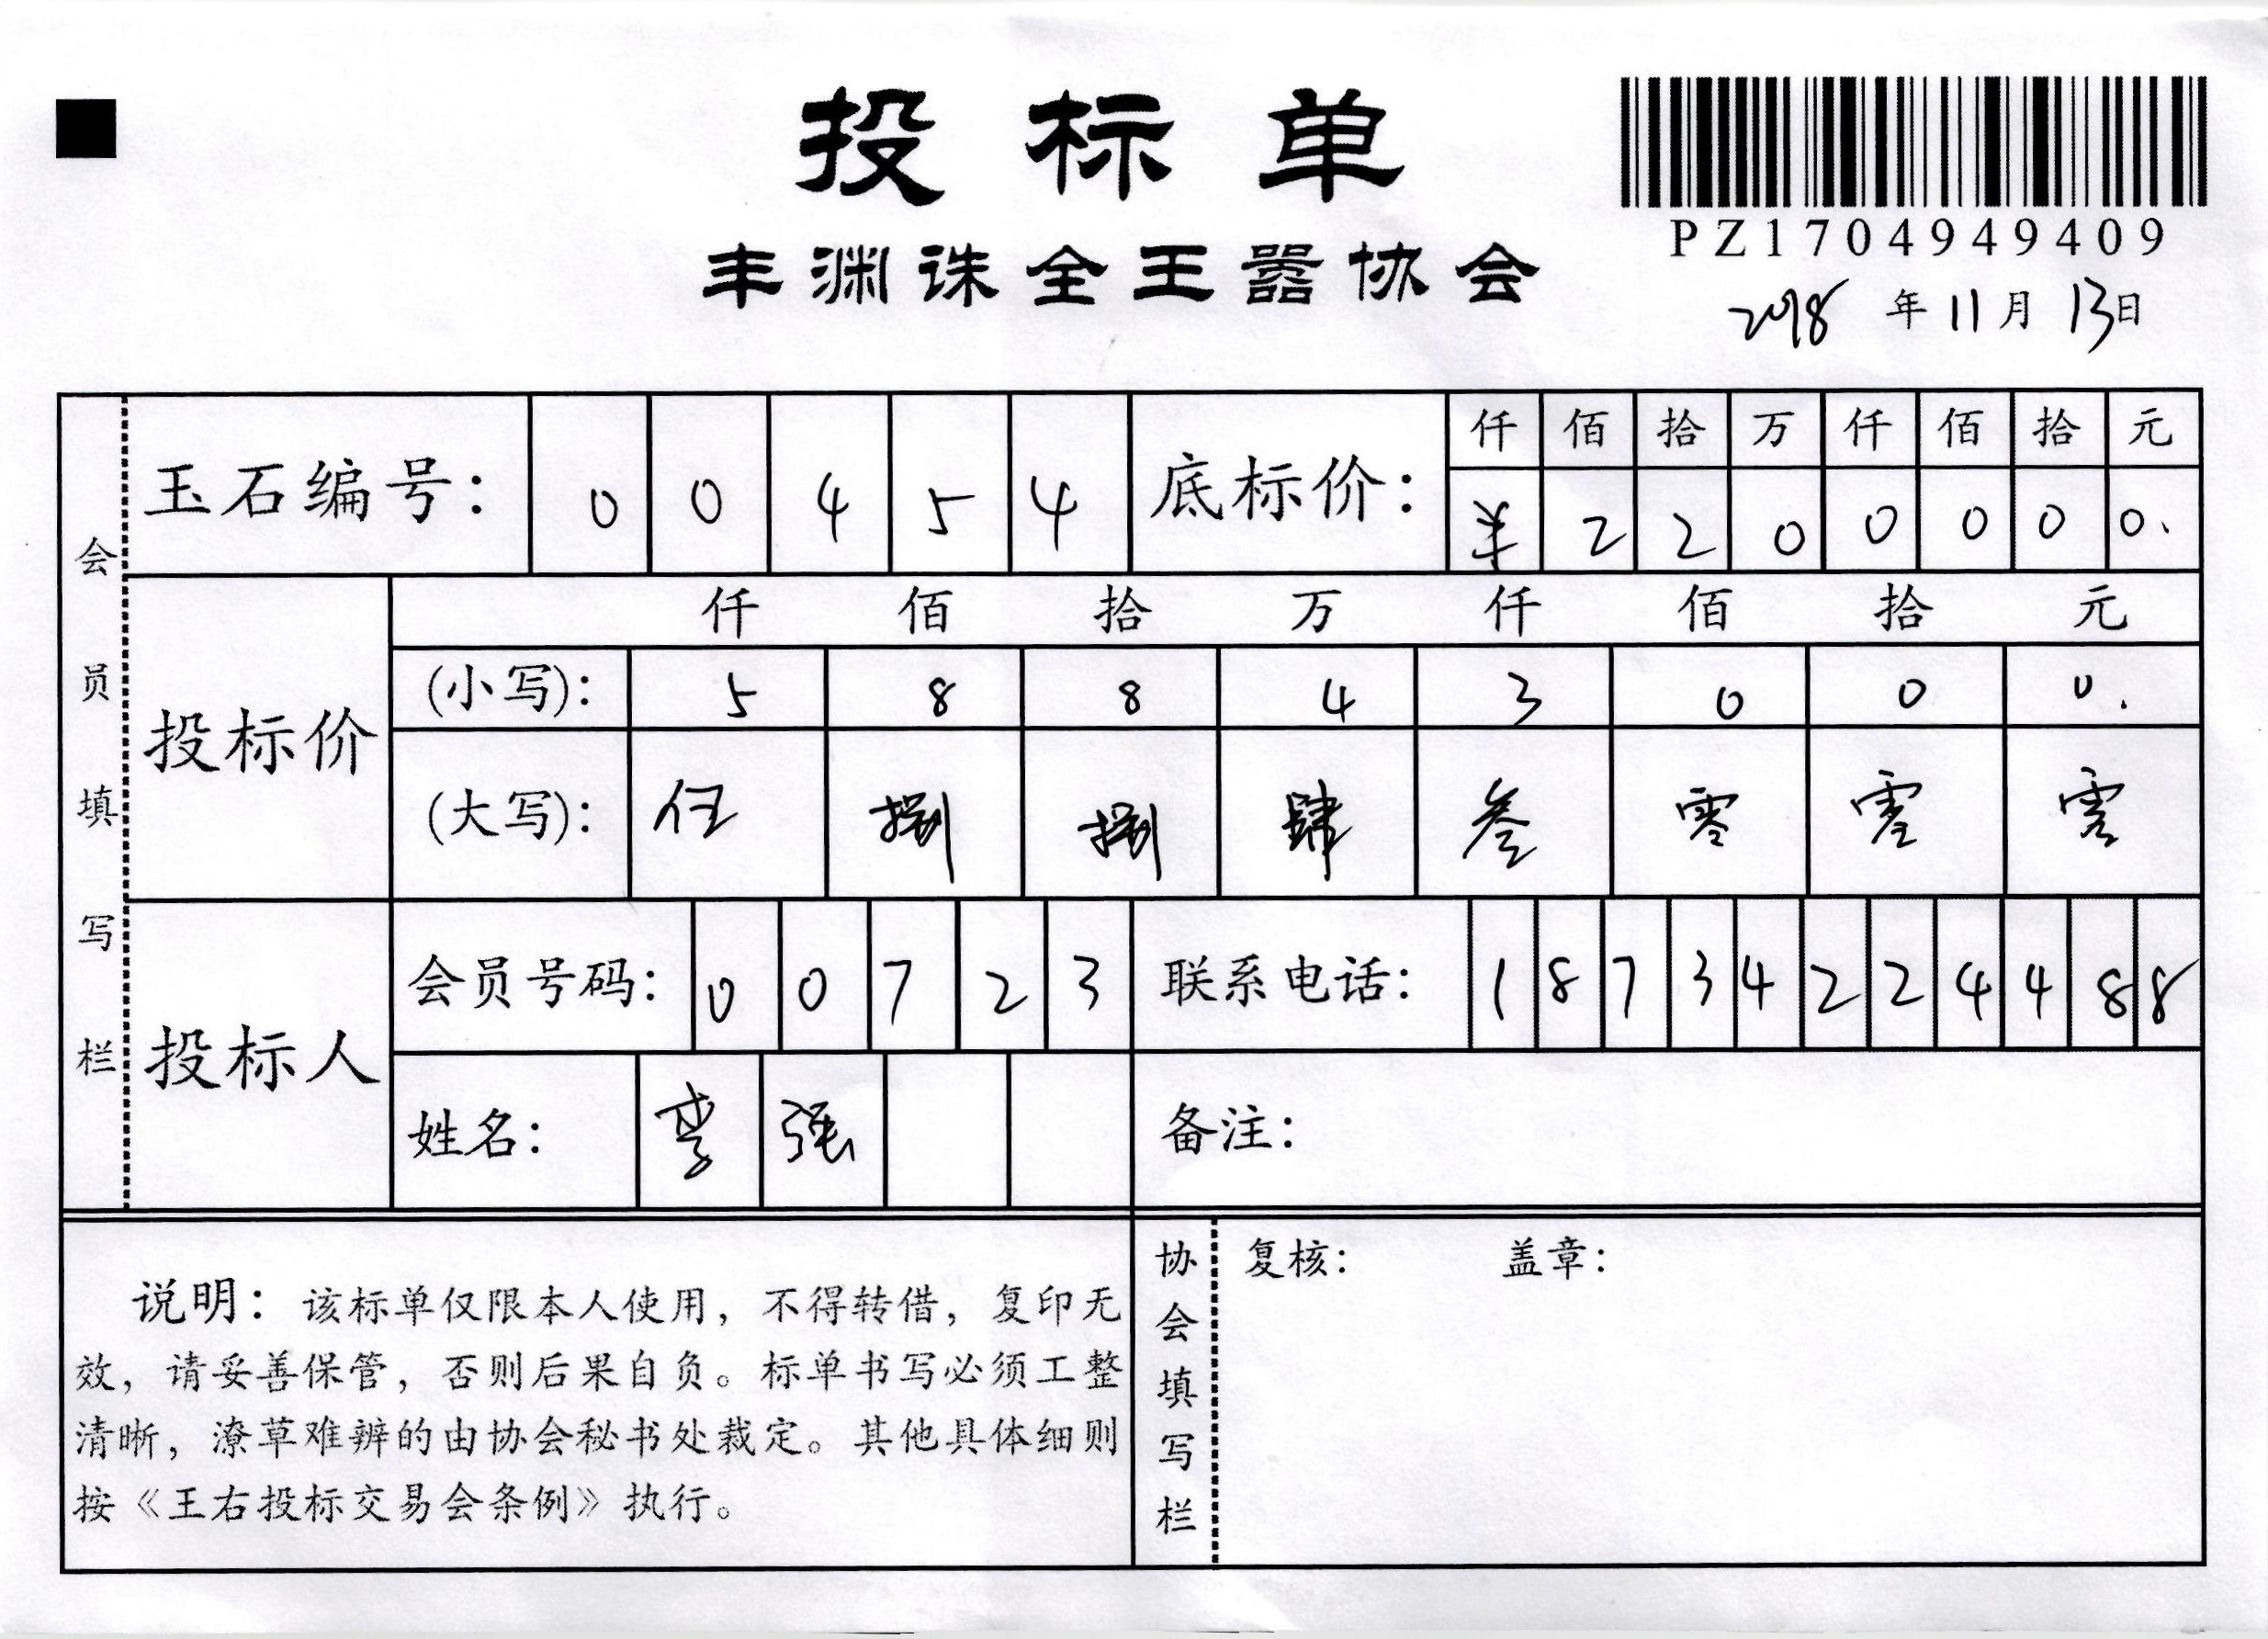 投标单
PZ1704949409
丰渊诛全王嚣协会
2018年11月13日
会员填写栏
玉石编号: 0 0 4 5 4 底标价: 仟 佰 拾 万 仟 佰 拾 元
¥ 2 2 0 0 0 0 0.
投标价 仟 佰 拾 万 仟 佰 拾 元
(小写): 5 8 8 4 3 0 0 0.
(大写): 伍 捌 捌 肆 叁 零 零 零
投标人 会员号码: 0 0 7 2 3 联系电话: 1 8 7 3 4 2 2 4 4 8 8
姓名: 李 强 备注:
说明: 该标单仅限本人使用, 不得转借, 复印无
效, 请妥善保管, 否则后果自负。标单书写必须工整
清晰, 潦草难辨的由协会秘书处裁定。其他具体细则
按《王右投标交易会条例》执行。
协会填写栏
复核: 盖章: